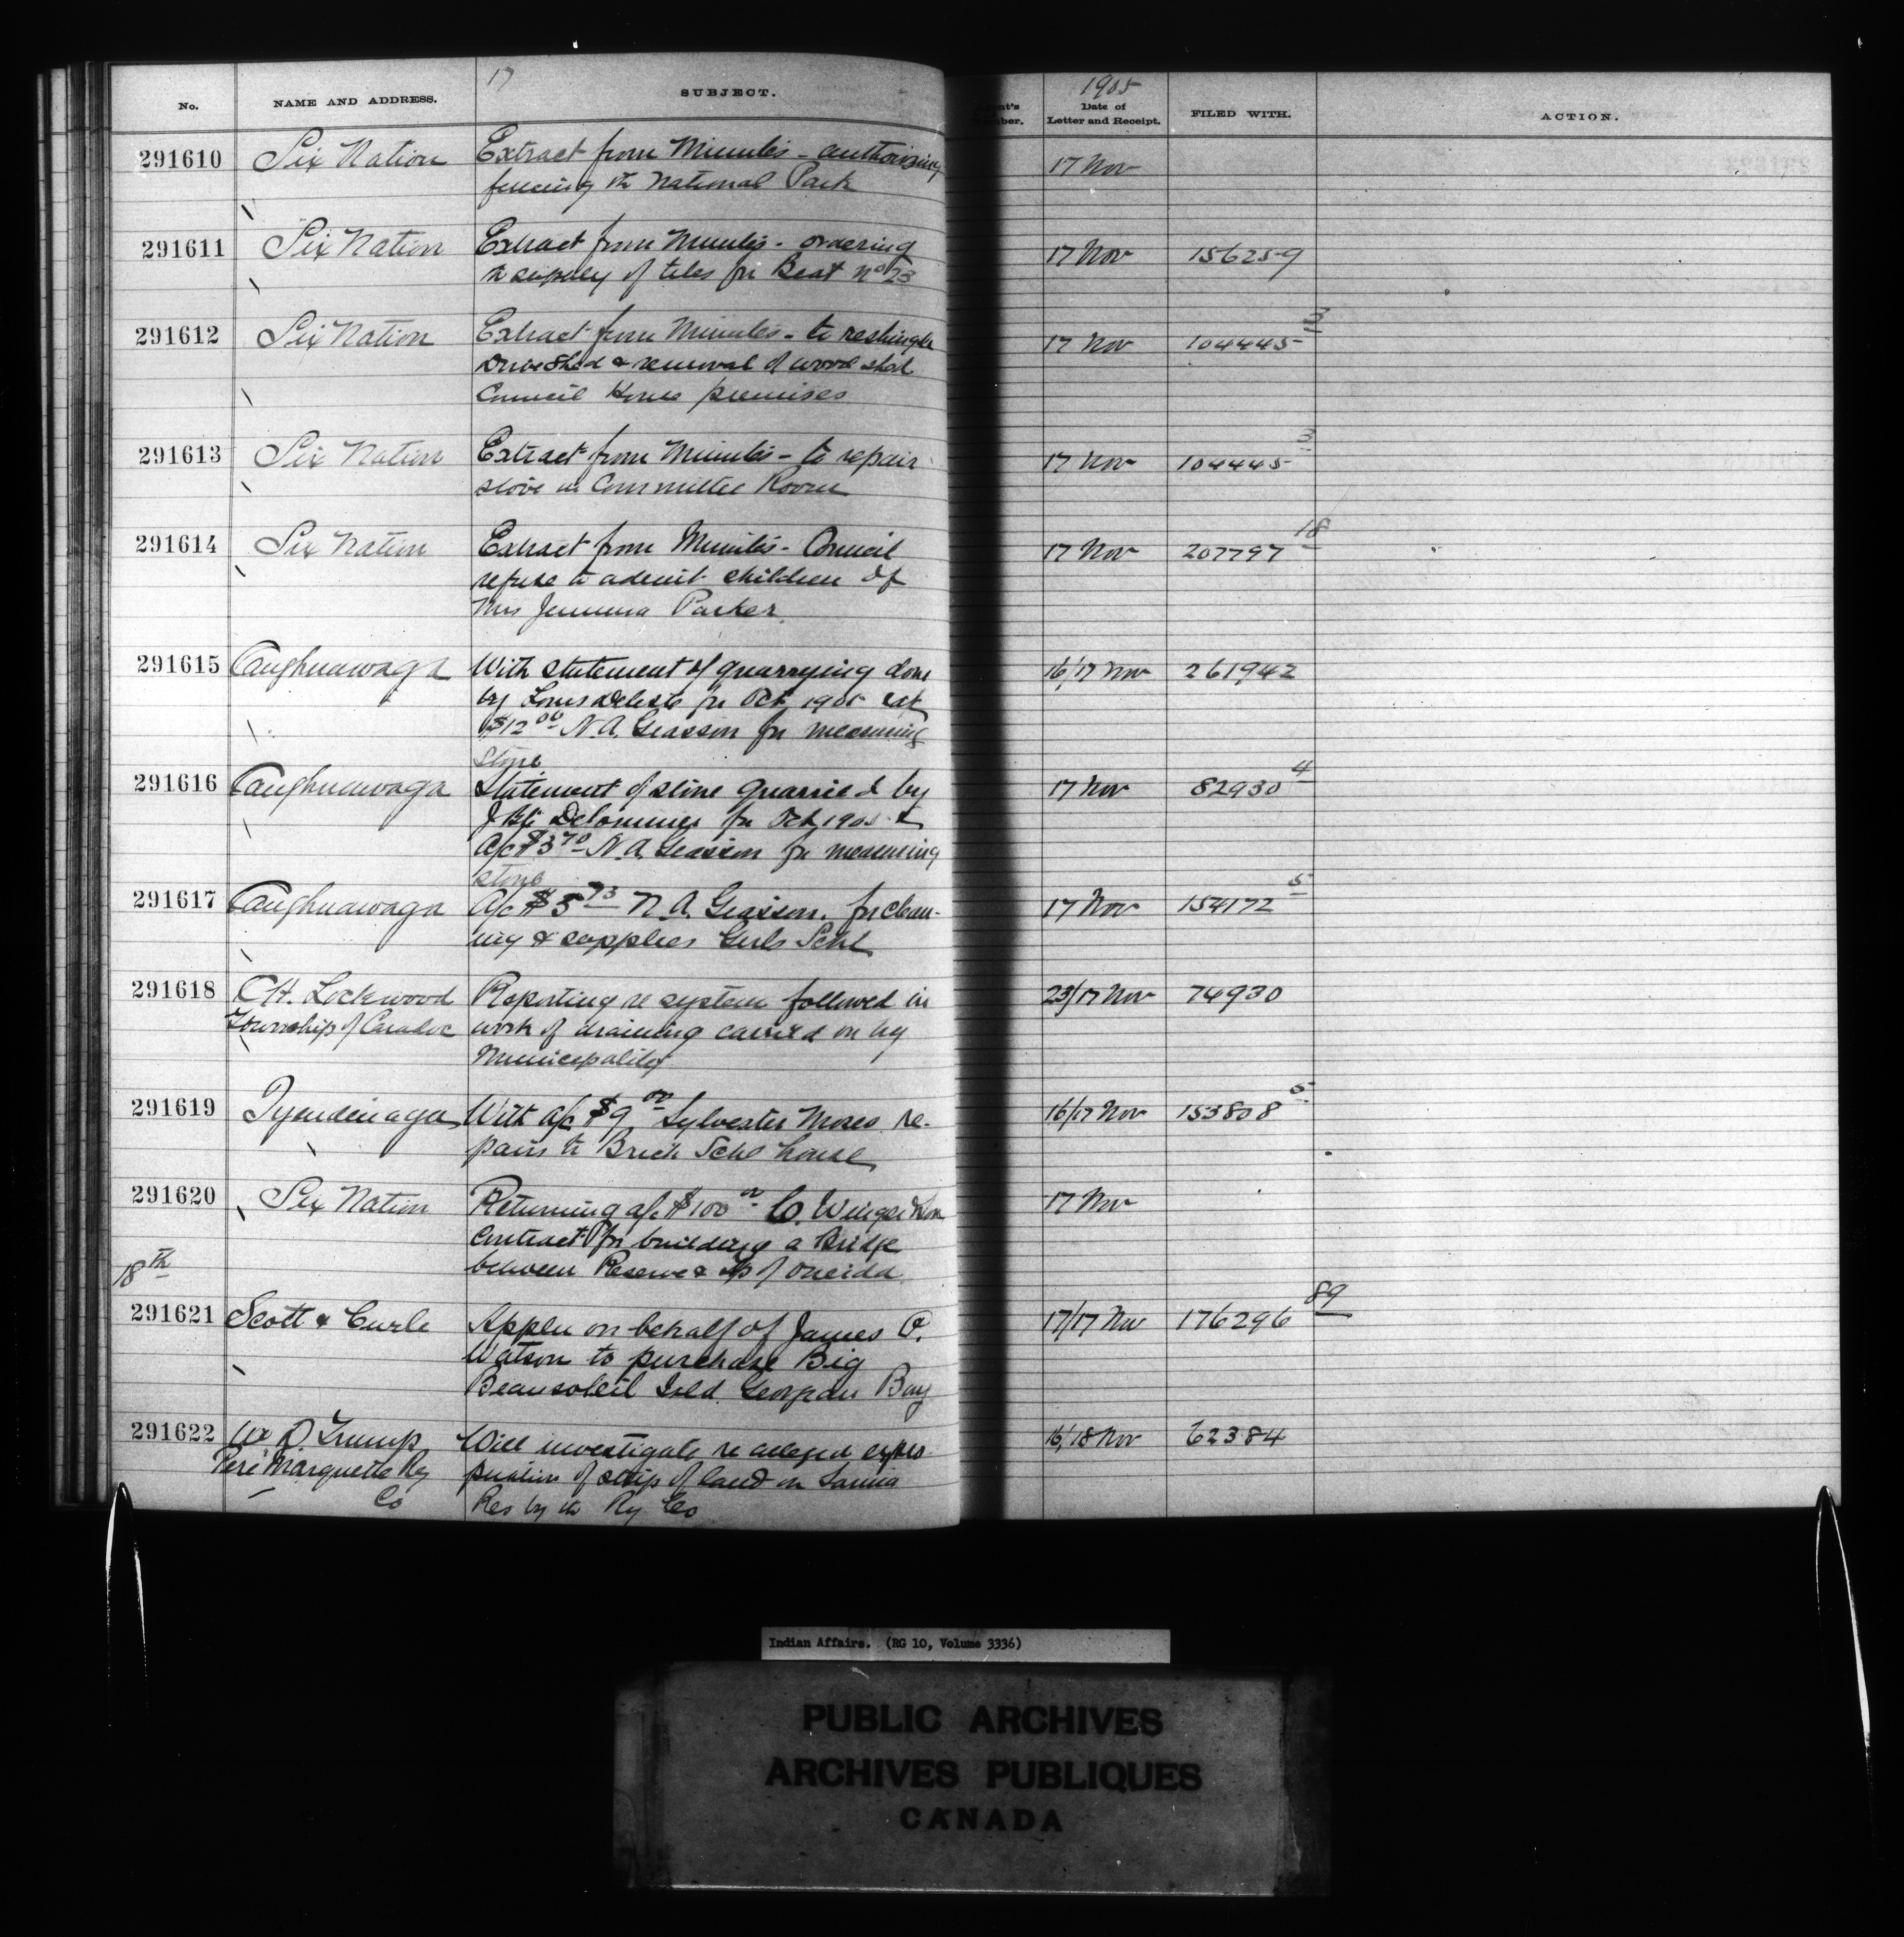 17
1905
No. NAME AND ADDRESS. SUBJECT. Date of Letter and Receipt. FILED WITH. ACTION.
291610 Six Nation Extract from Minutes - authorizing 17 Nov
fencing the National Park
291611 Six Nation Extract from Minutes - ordering 17 Nov 156259
a supply of tiles for Beat No 23
291612 Six Nation Extract from Minutes - to reshingle 17 Nov 104445 3
Drive Shed & removal of wood shed
Council House premises
291613 Six Nation Extract from Minutes - to repair 17 Nov 104445 3
stove in Committee Room
291614 Six Nation Extract from Minutes - Council 17 Nov 207797 18
refuse to admit children of
Mrs Jemima Parker
291615 Caughnawaga With statement of quarrying done 16/17 Nov 261942
by Louis Deleste for Oct 1905
$12 00 N. A. Giasson for measuring
stone
291616 Caughnawaga Statement of stone quarried by 17 Nov 82930 4
J Bte Delorimier for Oct 1905 &
A/c $3 70 N. A. Giasson for measuring
stone
291617 Caughnawaga A/c $5 73 N. A. Giasson. for clean- 17 Nov 154172 5
ing & supplies Girls Schl
291618 C H. Lockwood Reporting re system followed in 23/17 Nov 74930
Township of Caradoc work of draining carried on by
Municipality
291619 Tyendinaga With a/c $9 00 Sylvester Moses re- 16/17 Nov 153808 5
pairs to Brick Schl house
291620 Six Nation Returning a/c $100 00 17 Nov
Contract for building a Bridge
between Reserve & Tp of Oneida
18th
291621 Scott & Curle Appln on behalf of James P. 17/17 Nov 176296 89
Watson to purchase Big
Beausoleil Isld. Georgian Bay
291622 W D. Trump Will investigate re alleged expro 16/18 Nov 62384
Pere Marquette Ry priation of strip of land on Sarnia
Co Res by the Ry Co
Indian Affairs. (RG 10, Volume 3336)
PUBLIC ARCHIVES
ARCHIVES PUBLIQUES
CANADA